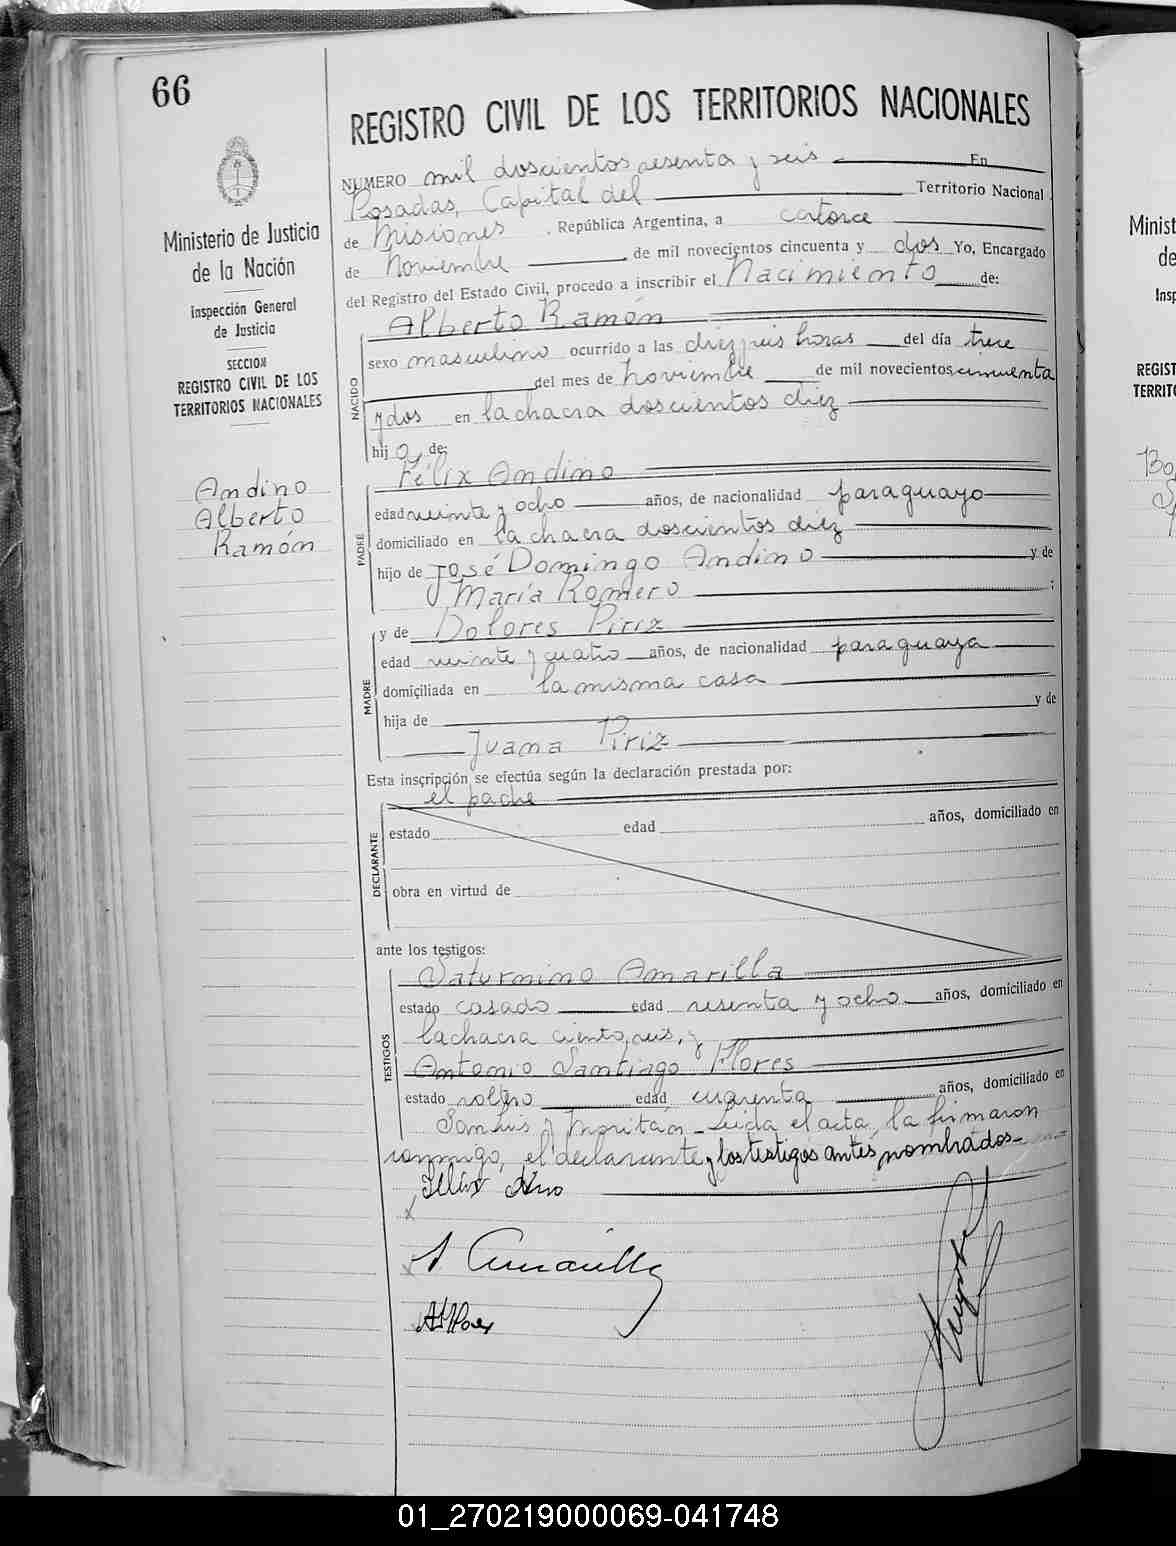 66
REGISTRO CIVIL DE LOS TERRITORIOS NACIONALES
Ministerio de Justicia
de la Nación
Inspección General
de Justicia
SECCION
REGISTRO CIVIL DE LOS
TERRITORIOS NACIONALES
Andino
Alberto
Ramón
NUMERO mil doscientos sesenta y seis En
Posadas, Capital del Territorio Nacional
de Misiones, República Argentina, a catorce
de Noviembre de mil novecientos cincuenta y dos Yo, Encargado
del Registro del Estado Civil, procedo a inscribir el Nacimiento de:
NACIDO
Alberto Ramón
sexo masculino ocurrido a las dieziseis horas del día trece
del mes de noviembre de mil novecientos cincuenta
y dos en la chacra doscientos diez
hijo, de:
PADRE
Félix Andino
edad veinte y ocho años, de nacionalidad paraguayo
domiciliado en la chacra doscientos diez
hijo de José Domingo Andino y de
María Romero ;
MADRE
y de Dolores Piriz
edad veinte y cuatro años, de nacionalidad paraguaya
domiciliada en la misma casa
hija de y de
Juana Piriz
Esta inscripción se efectúa según la declaración prestada por:
DECLARANTE
el padre
estado edad años, domiciliado en
obra en virtud de
ante los testigos:
TESTIGOS
Saturnino Amarilla
estado casado edad sesenta y ocho años, domiciliado en
la chacra ciento seis, y
Antonio Santiago Flores
estado soltero edad cuarenta años, domiciliado en
San Luis y Moritán - Leida el acta, la firmaron
conmigo, el declarante y los testigos antes nombrados-
A Amarilla
AFlores
Minist
de
Insp
REGIST
TERRITO
01_270219000069-041748